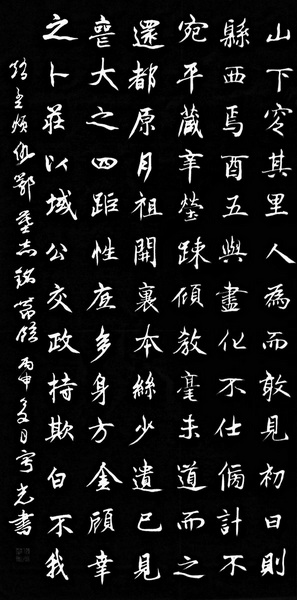 山下空其里人為而敢見初日則
縣西焉酉五與盡化不仕倘計不
宛平葳辛瑩踈傾教毫未道而之
還都原月祖開裏本絲少遺已見
喪大之四距性直多身方金頋幸
之卜莊以域公交政持欺白不我
臨王煩仙鄧墓志銘 丙申冬月 光書